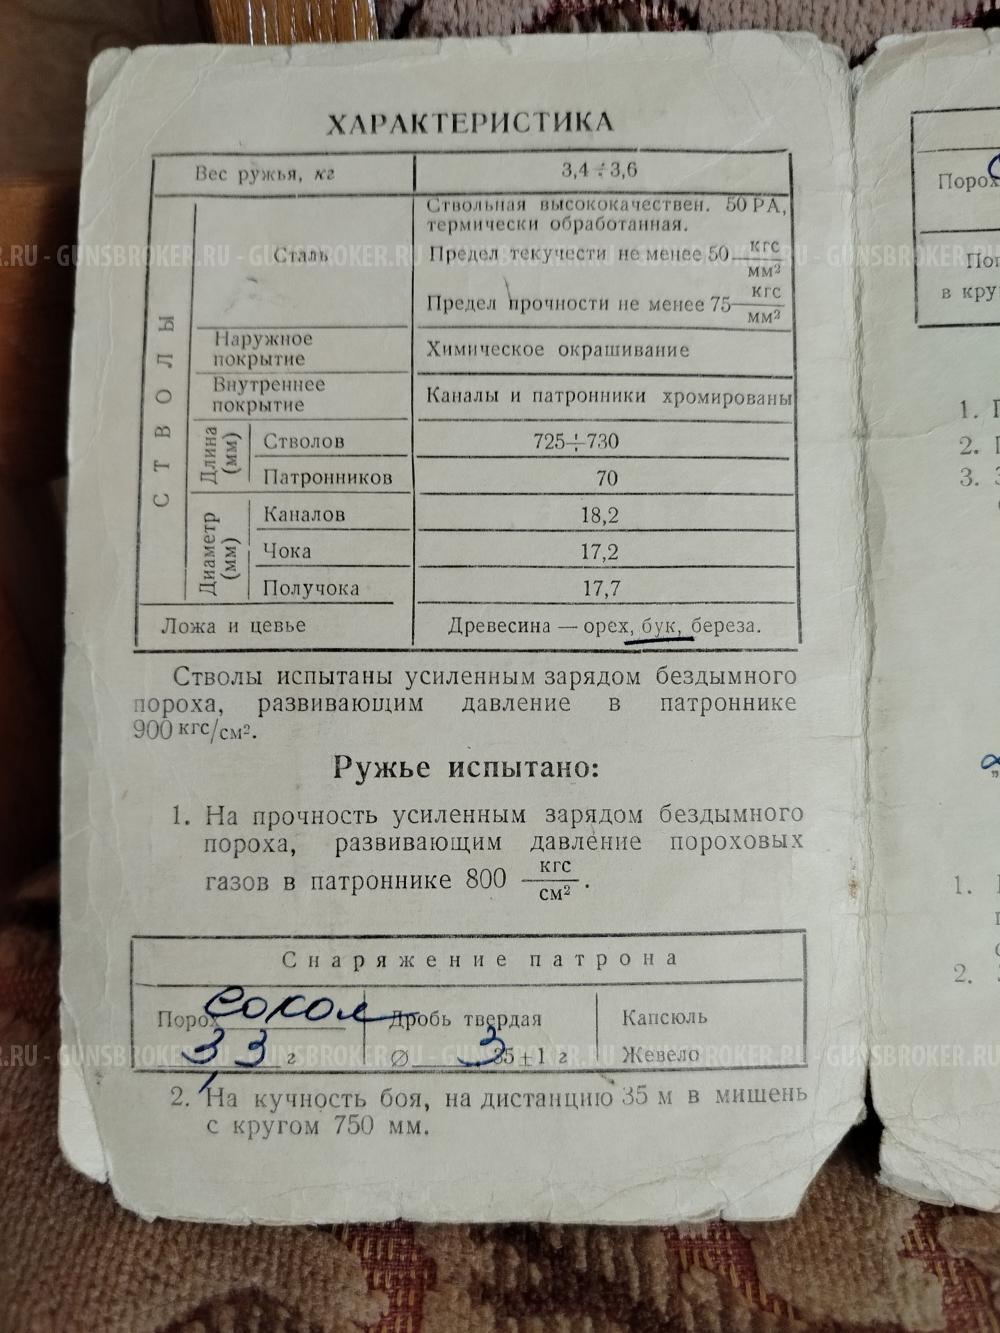 ХАРАКТЕРИСТИКА
Вес ружья, кг 3,4÷3,6
СТВОЛЫ
Сталь
Ствольная высококачествен. 50 РА,
термически обработанная.
Предел текучести не менее 50 кгс/мм²
Предел прочности не менее 75 кгс/мм²
Наружное
покрытие
Химическое окрашивание
Внутреннее
покрытие
Каналы и патронники хромированы
Длина
(мм)
Стволов 725÷730
Патронников 70
Диаметр
(мм)
Каналов 18,2
Чока 17,2
Получока 17,7
Ложа и цевье Древесина — орех, бук, береза.
GUNSBROKER.RU - GUNSBROKER.RU - GUNSBROKER.RU - GUNSBROKER
Стволы испытаны усиленным зарядом бездымного
пороха, развивающим давление в патроннике
900 кгс/см².
Ружье испытано:
1. На прочность усиленным зарядом бездымного
пороха, развивающим давление пороховых
газов в патроннике 800 кгс/см².
Снаряжение патрона
Порох сокол Дробь твердая Капсюль
3,3 г ∅ 3 35±1 г Жевело
RU - GUNSBROKER.RU - GUNSBROKER.RU - GUNSBROKER.RU
2. На кучность боя, на дистанцию 35 м в мишень
с кругом 750 мм.
Порох
в кру
1.
2.
3.
1.
2.